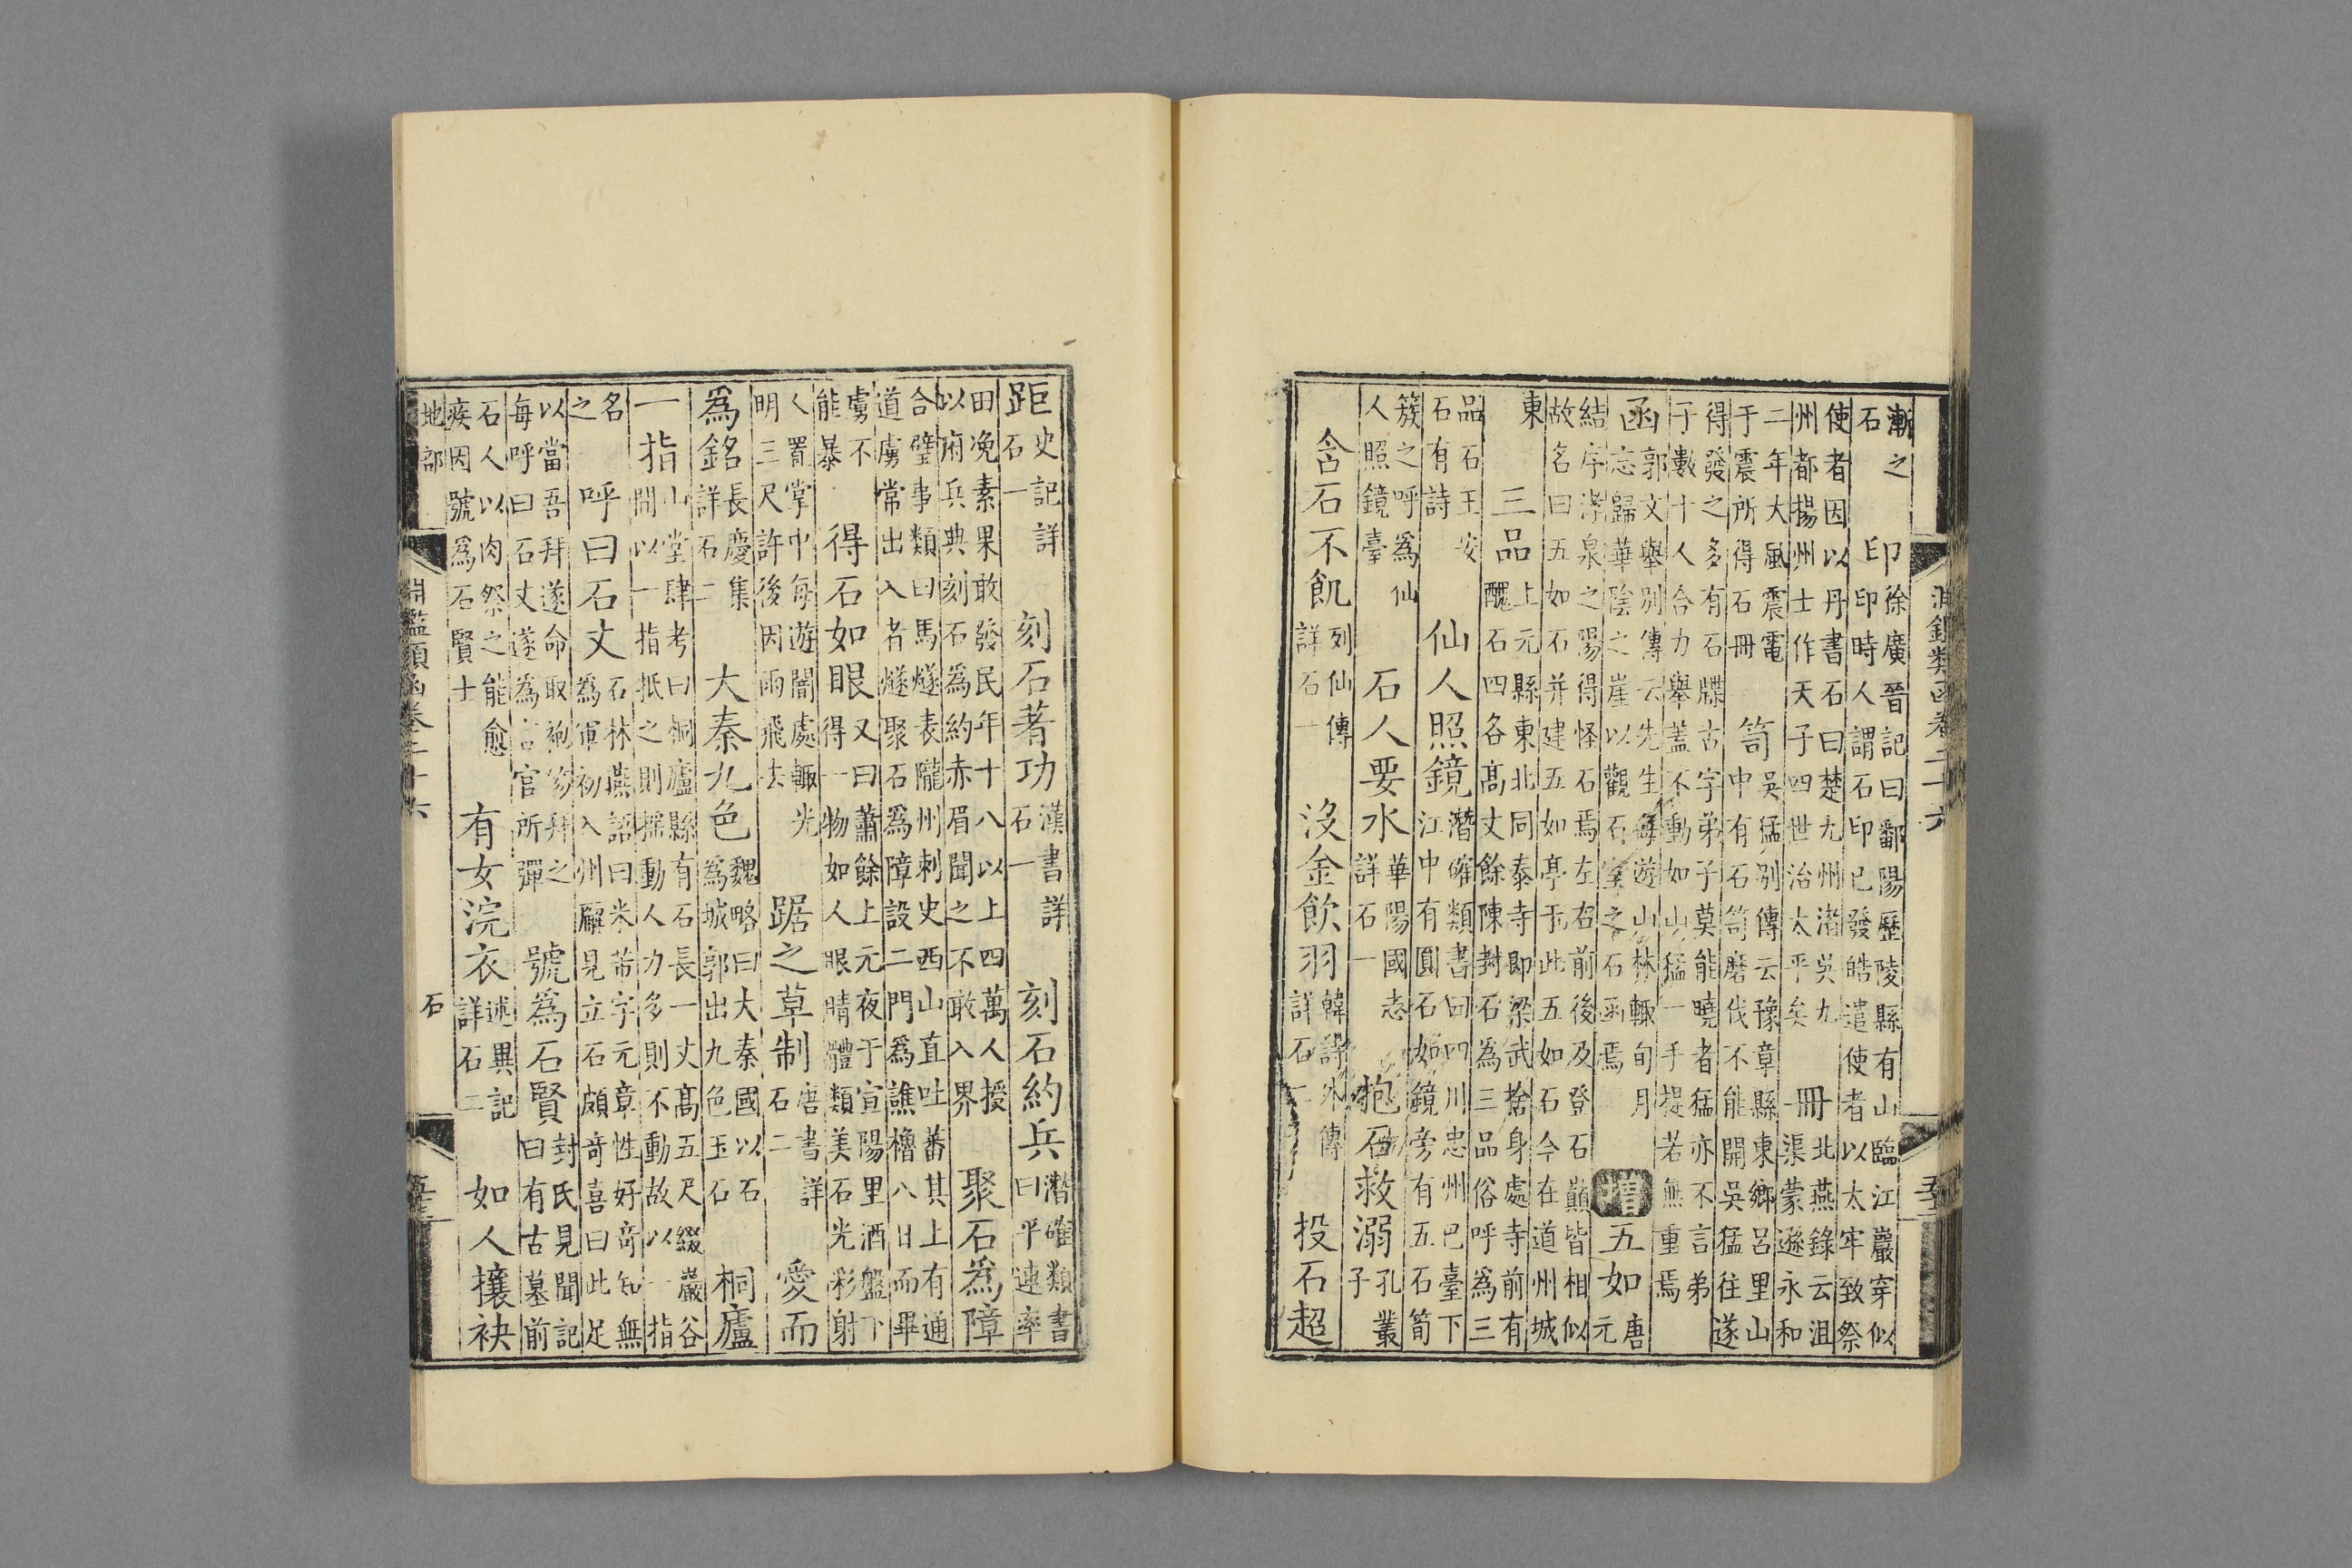 淵鑑類函卷二十六
漸之石 印 徐廣晉記曰鄱陽歷陵縣有山臨江巖穿似印時人謂石印已發皓遣使者以太牢致祭
使者因以丹書石曰楚九州渚吳九州都揚州士作天子四世治太平矣 冊 北燕錄云沮渠蒙遜永和
二年大風震電于震所得石冊 笥 吳猛別傳云豫章縣東鄉呂里山中有石笥磨伐不能開吳猛往遂
得發之多有石牒古字弟子莫能曉者猛亦不言弟于數十人合力舉蓋不動如山猛一手提若無重焉
函 郭文舉別傳云先生每遊山林輒旬月忘歸華陰之崖以觀石室之石函焉 增 五如 唐元
結字泉之陽得怪石焉左右前後及登石巔皆相似故名曰五如石并建五如亭于此五如石今在道州城
東 三品 上元縣東北同泰寺即梁武捨身處寺前有醜石四各高丈餘陳封石為三品俗呼為三
品石王安石有詩 仙人照鏡 潛確類書曰四川忠州巴臺下江中有圓石如鏡旁有五石筍
簇之呼為仙人照鏡臺 石人要水 華陽國志詳石一 抱石救溺 孔叢子
含石不飢 列仙傳詳石一 沒金飲羽 韓詩外傳詳石一 投石超
距 史記詳石一 刻石著功 漢書詳石一 刻石約兵 潛確類書曰平連率
田浼素果敢發民年十八以上四萬人授以府兵典刻石為約赤眉聞之不敢入界 聚石為障
合璧事類曰馬燧表隴州刺史西山直吐蕃其上有通道虜常出入者燧聚石為障設二門為譙櫓八日而畢
虜不能暴 得石如眼 又曰蕭餘上元夜于宣陽里酒盤下得一物如人眼睛體類美石光彩射
人置掌中每遊闇處輒光明三尺許後因雨飛去 踞之草制 唐書詳石二 愛而
為銘 長慶集詳石二 大秦九色 魏略曰大秦國以石為城郭出九色玉石 桐廬
一指 山堂肆考曰桐廬縣有石長一丈高五尺綴巖谷間以一指抵之則搖動人力多則不動故以一指
名之 呼曰石丈 石林燕語曰米芾字元章性好奇知無為軍初入州廨見立石頗奇喜曰此足
以當吾拜遂命取袍笏拜之每呼曰石丈遂為言官所彈 號為石賢 封氏見聞記曰有古墓前
石人以肉祭之能愈疾因號為石賢士 有女浣衣 述異記詳石二 如人攘袂
地部 石
淵鑑類函卷二十六